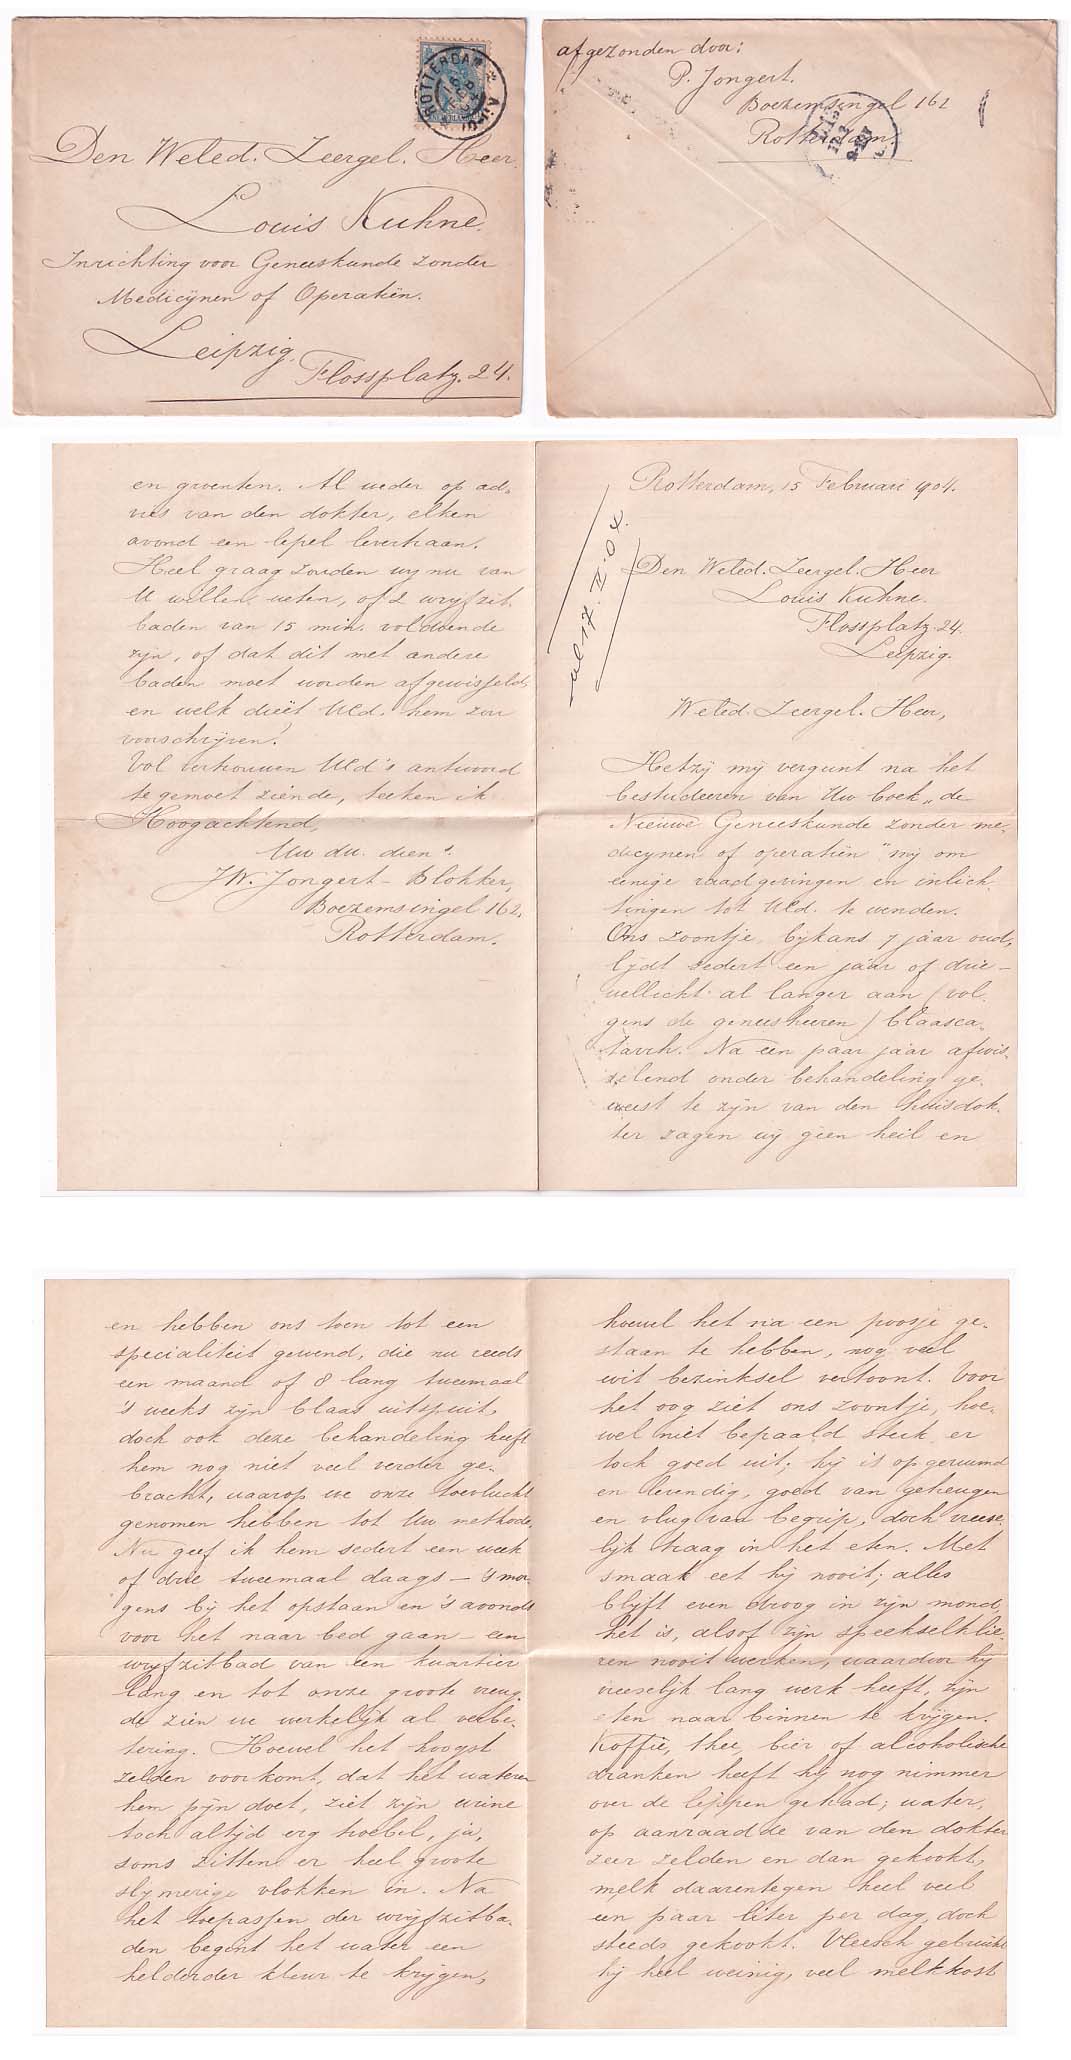 ROTTERDAM
16 FEB
Den Weled. Zeergel. Heer
Louis Kuhne.
Inrichting voor Geneeskunde zonder
Medicynen of Operatiën.
Leipzig.
Flossplatz. 24.
afgezonden door:
P. Jongert.
Boezemsingel 162
Rotterdam.
Rotterdam, 15 Februari 1904.
17. II. 04.
Den Weled. Zeergel. Heer
Louis Kuhne.
Flossplatz. 24.
Leipzig.
Weled. Zeergel. Heer,
Het zij mij vergunt na het
bestudeeren van Uw boek „de
Nieuwe Geneeskunde zonder me-
dicynen of operatiën" mij om
eenige raadgevingen en inlich-
tingen tot UEd. te wenden.
Ons zoontje, bijkans 7 jaar oud,
lijdt sedert een jaar of drie —
wellicht al langer aan (vol-
gens de geneesheeren) blaasca-
tarrh. Na een paar jaar afwis-
selend onder behandeling ge-
weest te zijn van den huisdok-
ter zagen wij geen heil en
en hebben ons toen tot een
specialiteit gewend, die nu reeds
een maand of 8 lang tweemaal
's weeks zijn blaas uitspuit,
doch ook deze behandeling heeft
hem nog niet veel verder ge-
bracht, waarop we onze toevlucht
genomen hebben tot Uw methode.
Nu geef ik hem sedert een week
of drie tweemaal daags — 's mor-
gens bij het opstaan en 's avonds
voor het naar bed gaan — een
wrijfzitbad van een kwartier
lang en tot onze groote vreug-
de zien we werkelijk al verbe-
tering. Hoewel het hoogst
zelden voorkomt, dat het wateren
hem pijn doet, ziet zijn urine
toch altijd erg troebel, ja,
soms zitten er heel groote
slijmerige vlokken in. Na
het toepassen der wrijfzitba-
den begint het water een
helderder kleur te krijgen,
hoewel het na een poosje ge-
staan te hebben, nog veel
wit bezinksel vertoont. Voor
het oog ziet ons zoontje, hoe-
wel niet bepaald sterk er
toch goed uit; hij is opgeruimd
en levendig, goed van geheugen
en vlug van begrip, doch vreese-
lijk traag in het eten. Met
smaak eet hij nooit; alles
blijft even droog in zijn mond,
het is, alsof zijn speekselklie-
ren nooit werken, waardoor hij
vreeselijk lang werk heeft, zijn
eten naar binnen te krijgen.
Koffie, thee, bier of alcoholische
dranken heeft hij nog nimmer
over de lippen gehad; water,
op aanraadde van den dokter
zeer zelden en dan gekookt,
melk daarentegen heel veel
een paar liter per dag, doch
steeds gekookt. Vleesch gebruikt
hij heel weinig, veel melkkost
en groenten. Al weder op ad-
vies van den dokter, elken
avond een lepel levertraan.
Heel graag zouden wij nu van
U willen weten, of 2 wrijfzit-
baden van 15 min. voldoende
zijn, of dat dit met andere
baden moet worden afgewisseld,
en welk dieët UEd. hem zou
voorschrijven?
Vol vertrouwen UEd's antwoord
te gemoet ziende, teeken ik
Hoogachtend,
Uw dw. dien.
JW. Jongert-Blokker,
Boezemsingel 162.
Rotterdam.